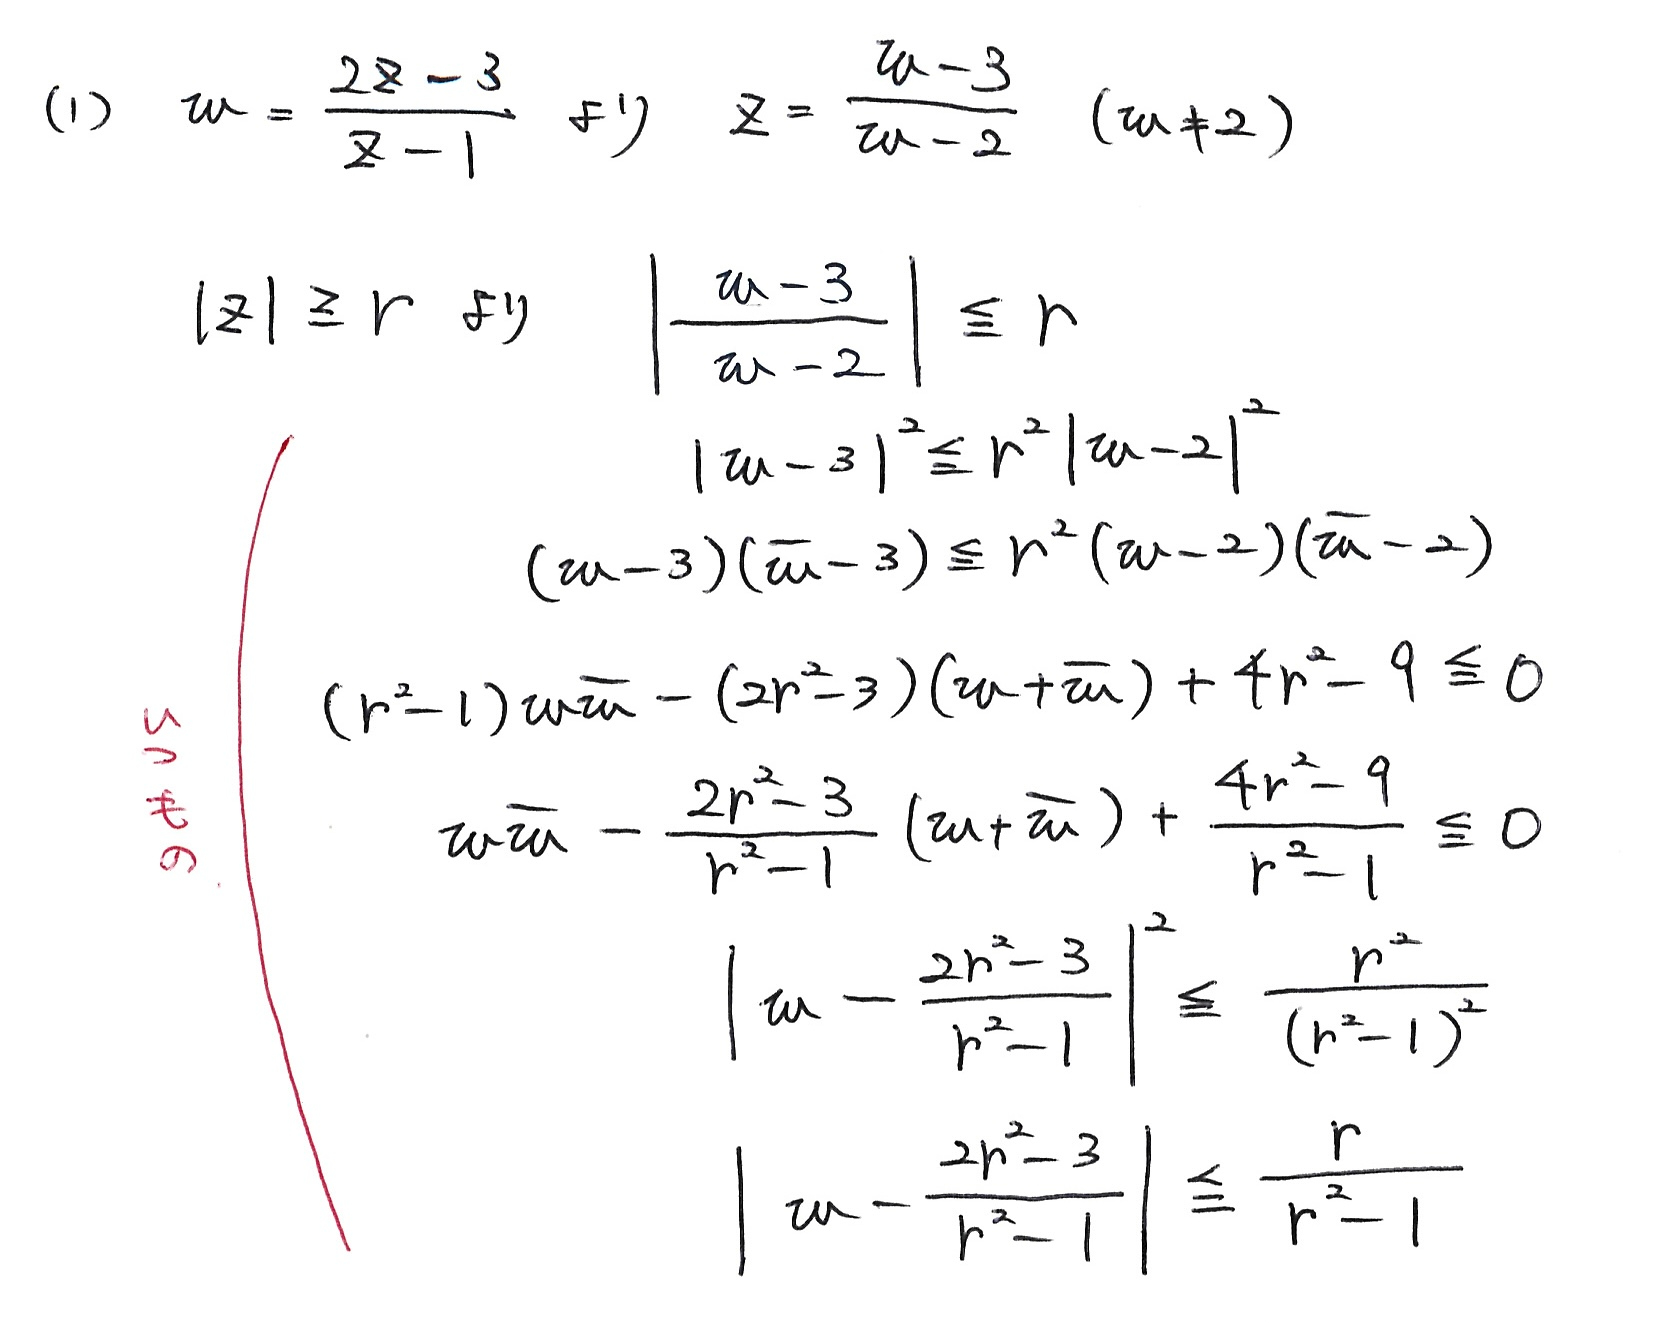 (1) w = \frac{2z-3}{z-1} より z = \frac{w-3}{w-2} (w≠2)
|z| ≧ r より \left|\frac{w-3}{w-2}\right| ≦ r
|w-3|^2 ≦ r^2|w-2|^2
(w-3)(\overline{w}-3) ≦ r^2(w-2)(\overline{w}-2)
(r^2-1)w\overline{w} - (2r^2-3)(w+\overline{w}) + 4r^2-9 ≦ 0
w\overline{w} - \frac{2r^2-3}{r^2-1}(w+\overline{w}) + \frac{4r^2-9}{r^2-1} ≦ 0
\left|w - \frac{2r^2-3}{r^2-1}\right|^2 ≦ \frac{r^2}{(r^2-1)^2}
\left|w - \frac{2r^2-3}{r^2-1}\right| ≦ \frac{r}{r^2-1}
いつもの